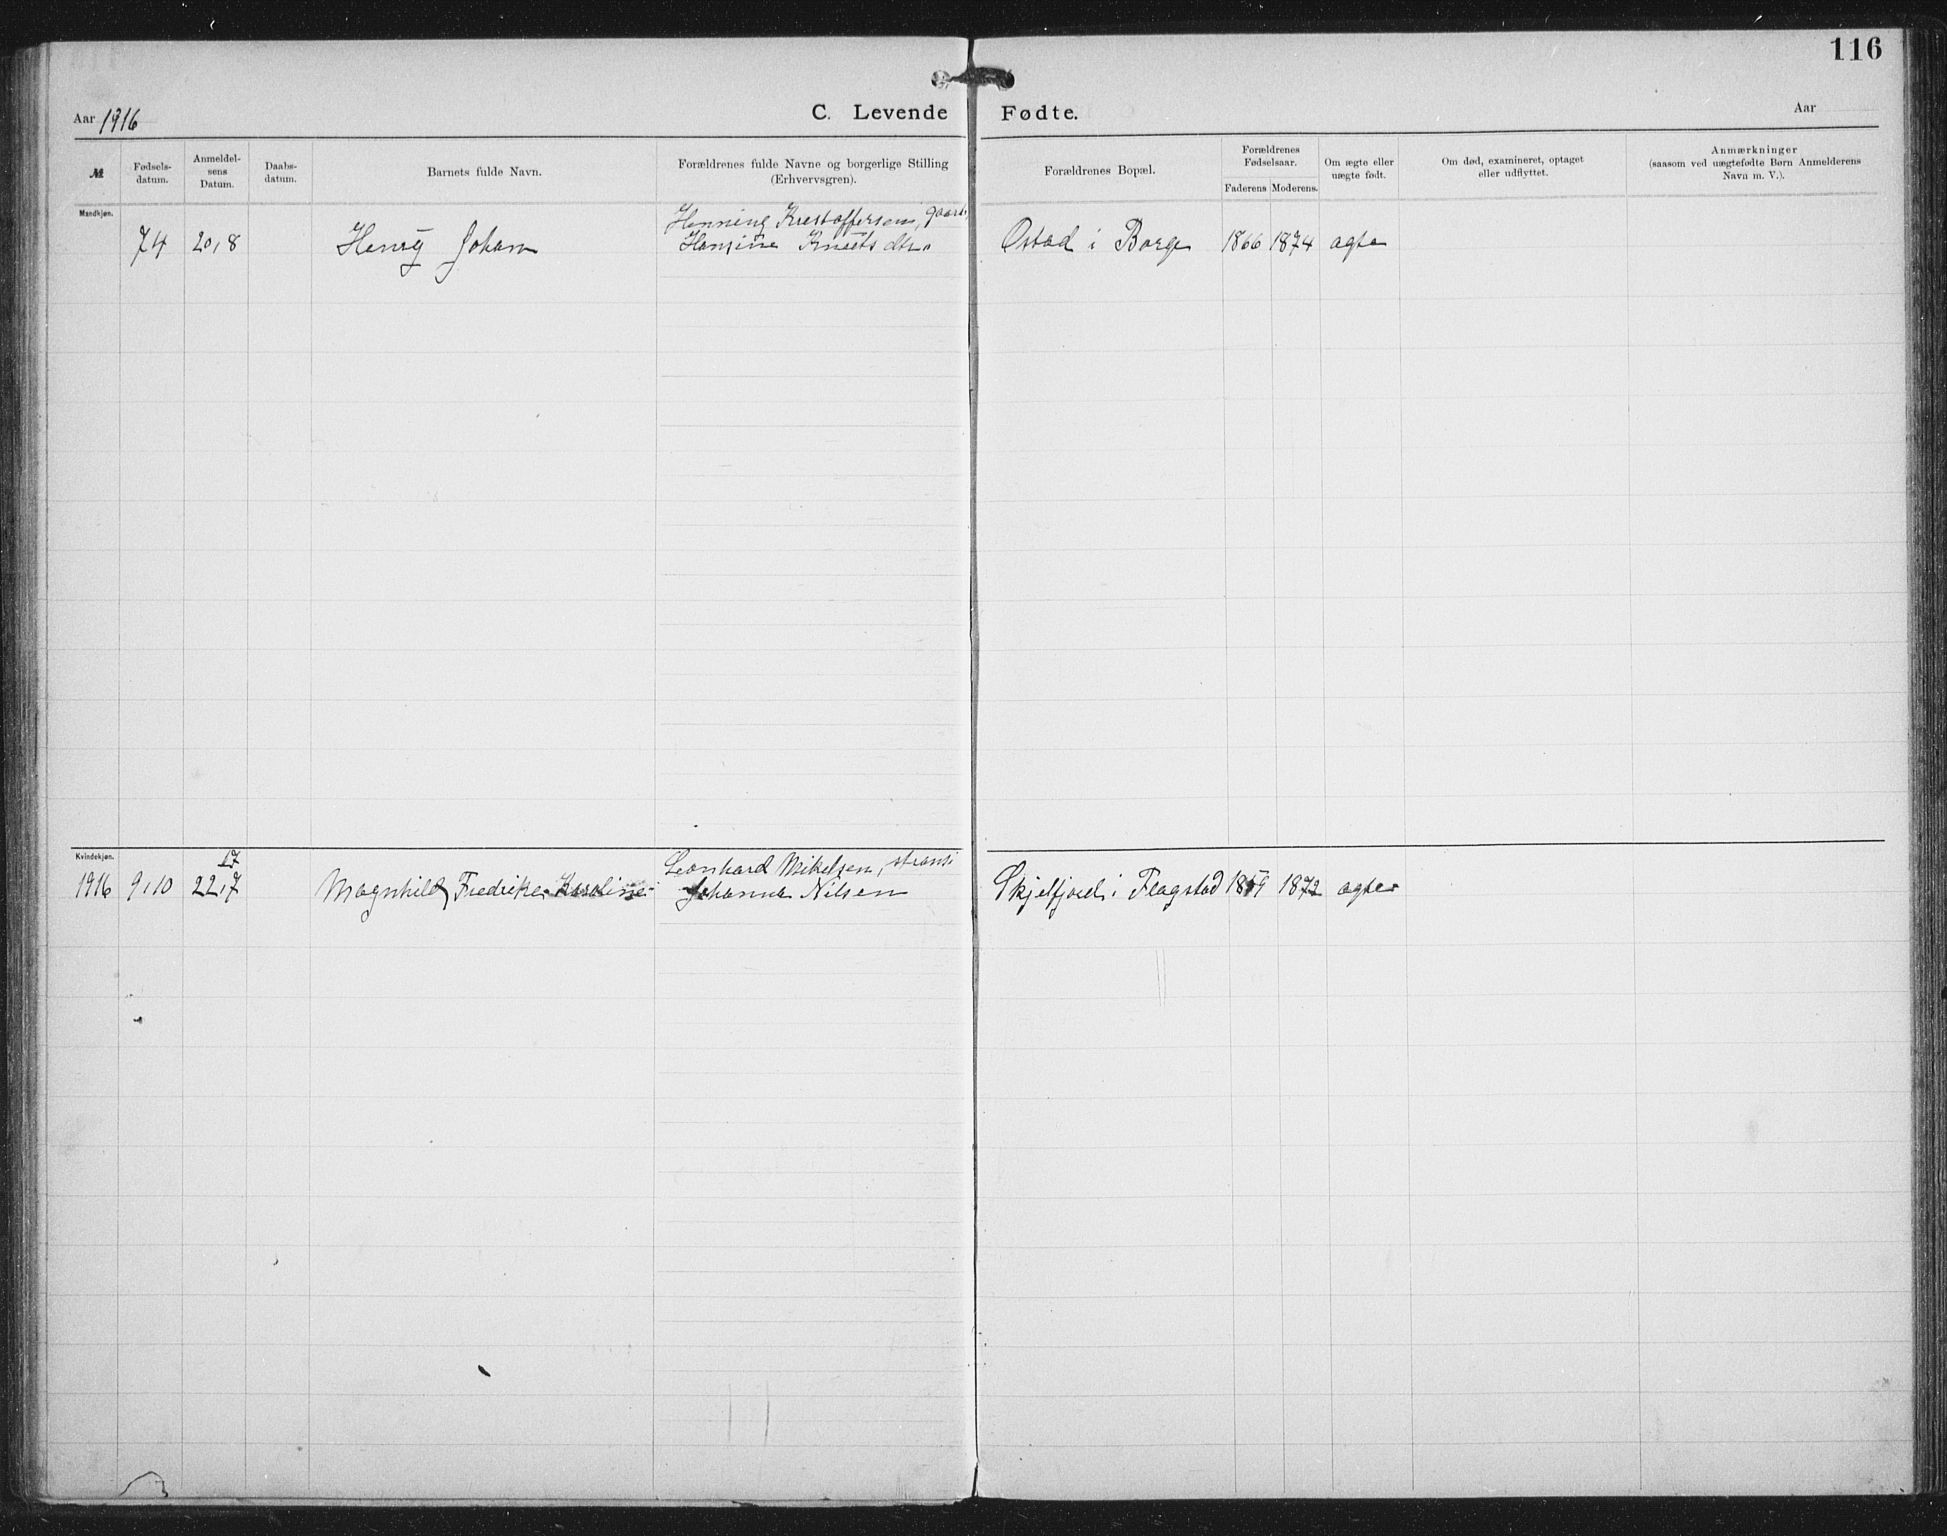 116
Aar 1916
C. Levende Fødte.
Aar
№
Fødsels-
datum.
Anmeldel-
sens
Datum.
Daabs-
datum.
Barnets fulde Navn.
Forældrenes fulde Navne og borgerlige Stilling
(Erhvervsgren).
Forældrenes Bopæl.
Forældrenes
Fødselsaar.
Faderens Moderens.
Om ægte eller
uægte født.
Om død, examineret, optaget
eller udflyttet.
Anmærkninger
(saasom ved uægtefødte Børn Anmelderens
Navn m. V.).
Mandkjøn.
Henning Kristoffersen,
7/4 20/8 Henry Johan Hansine dtr. Ostad i Borge 1866 1874 ægte
Kvindekjøn.
17
Leonhard Mikelsen,
1916 9/10 22/7 Magnhild Fredrike Karoline Johanna Nilsen Skjelfjord i Flagstad 1872 ægte